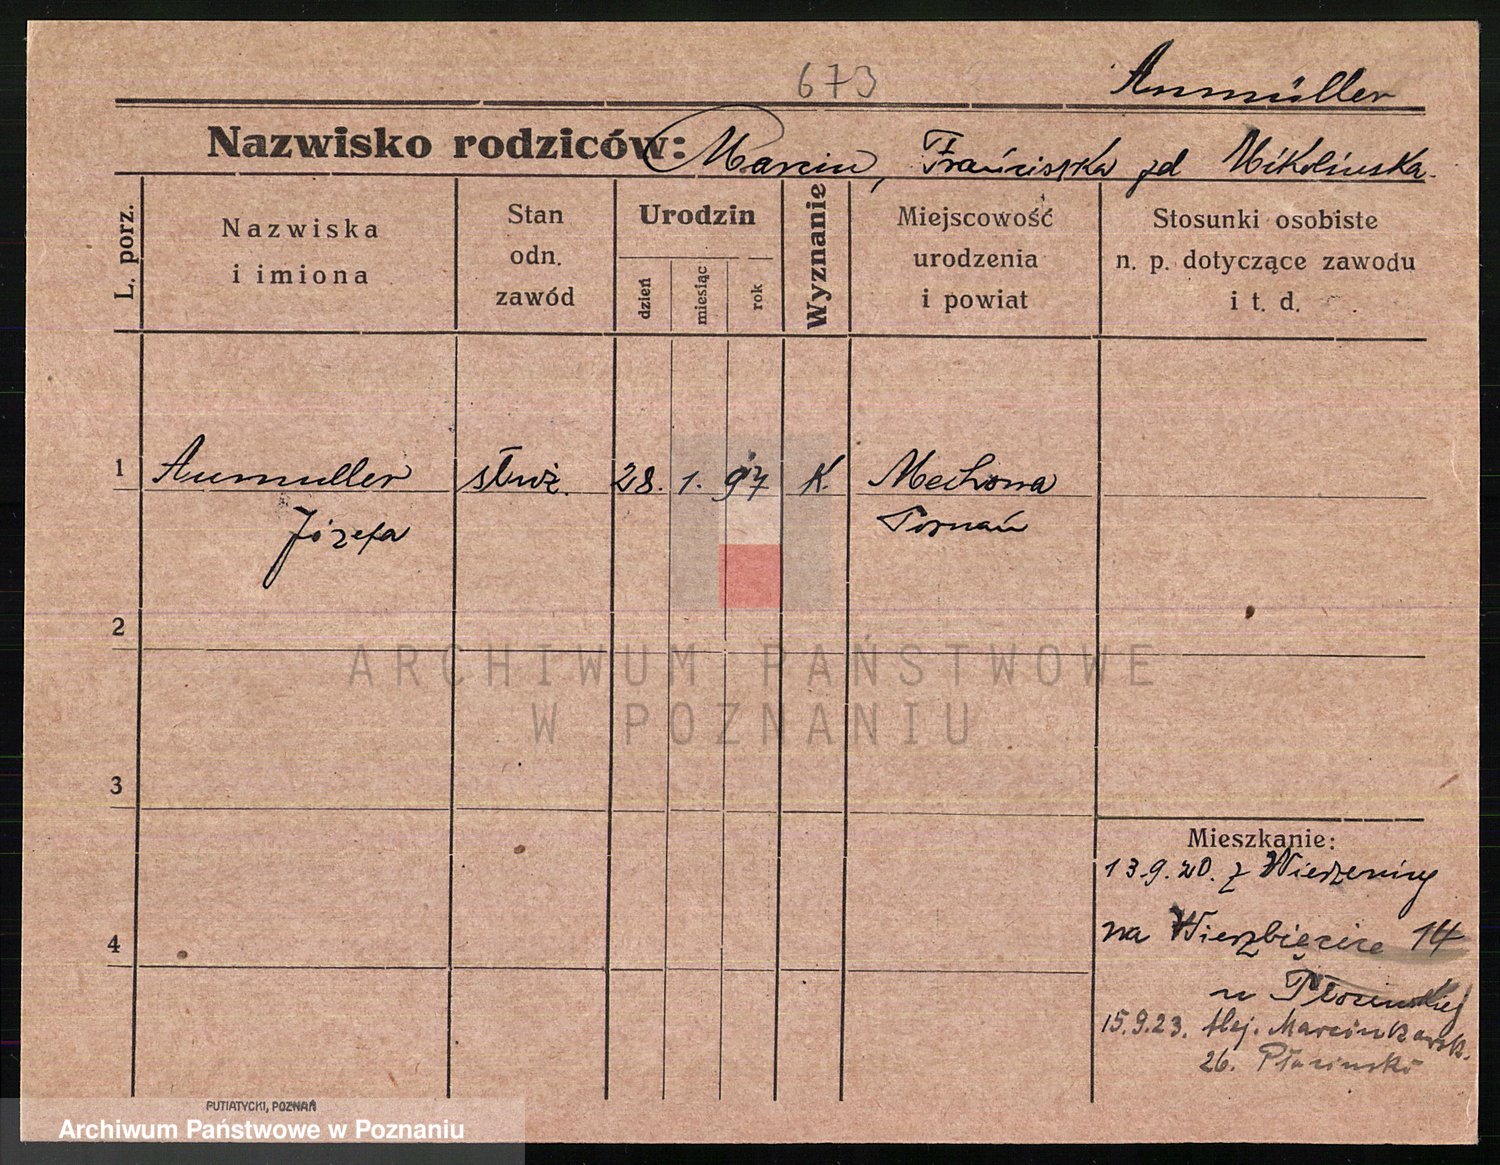 673
Anmüller
Nazwisko rodziców: Marcin, Franciszka zd Mikolinska
L. porz.
Nazwiska i imiona
Stan odn. zawód
Urodzin
dzień
miesiąc
rok
Wyznanie
Miejscowość urodzenia i powiat
Stosunki osobiste n. p. dotyczące zawodu i t. d.
1 Anmuller służ. 28. 1. 97 K. Mechowa
Józefa Poznań
2
ARCHIWUM PAŃSTWOWE
W POZNANIU
3
Mieszkanie:
13.9.20. z
na Wierzbięcice 14
4
u
15.9.23. Alej. Marcinkowsk.
26.
PUTIATYCKI, POZNAŃ
Archiwum Państwowe w Poznaniu